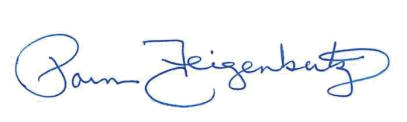 Pam Feigenbutz